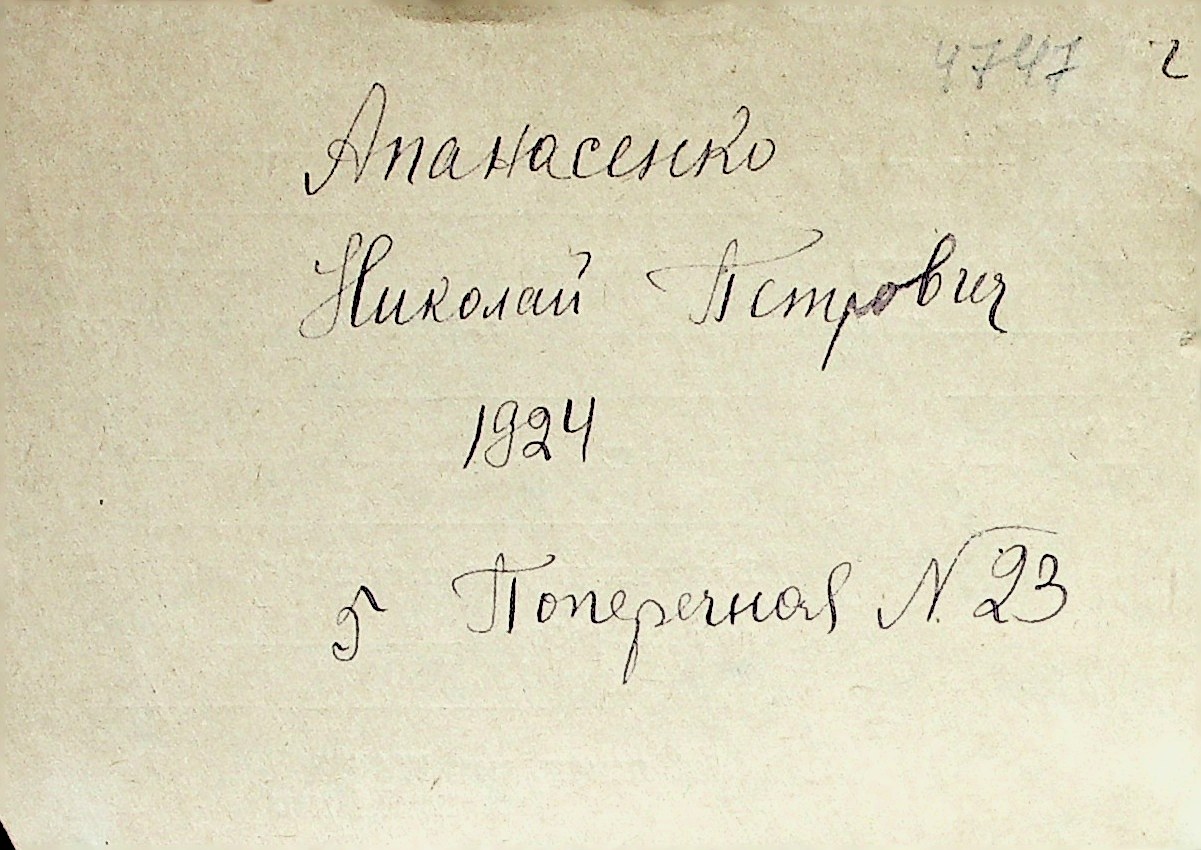 4747 2
Апанасенко
Николай Петрович
1924
5 Поперечная N 23